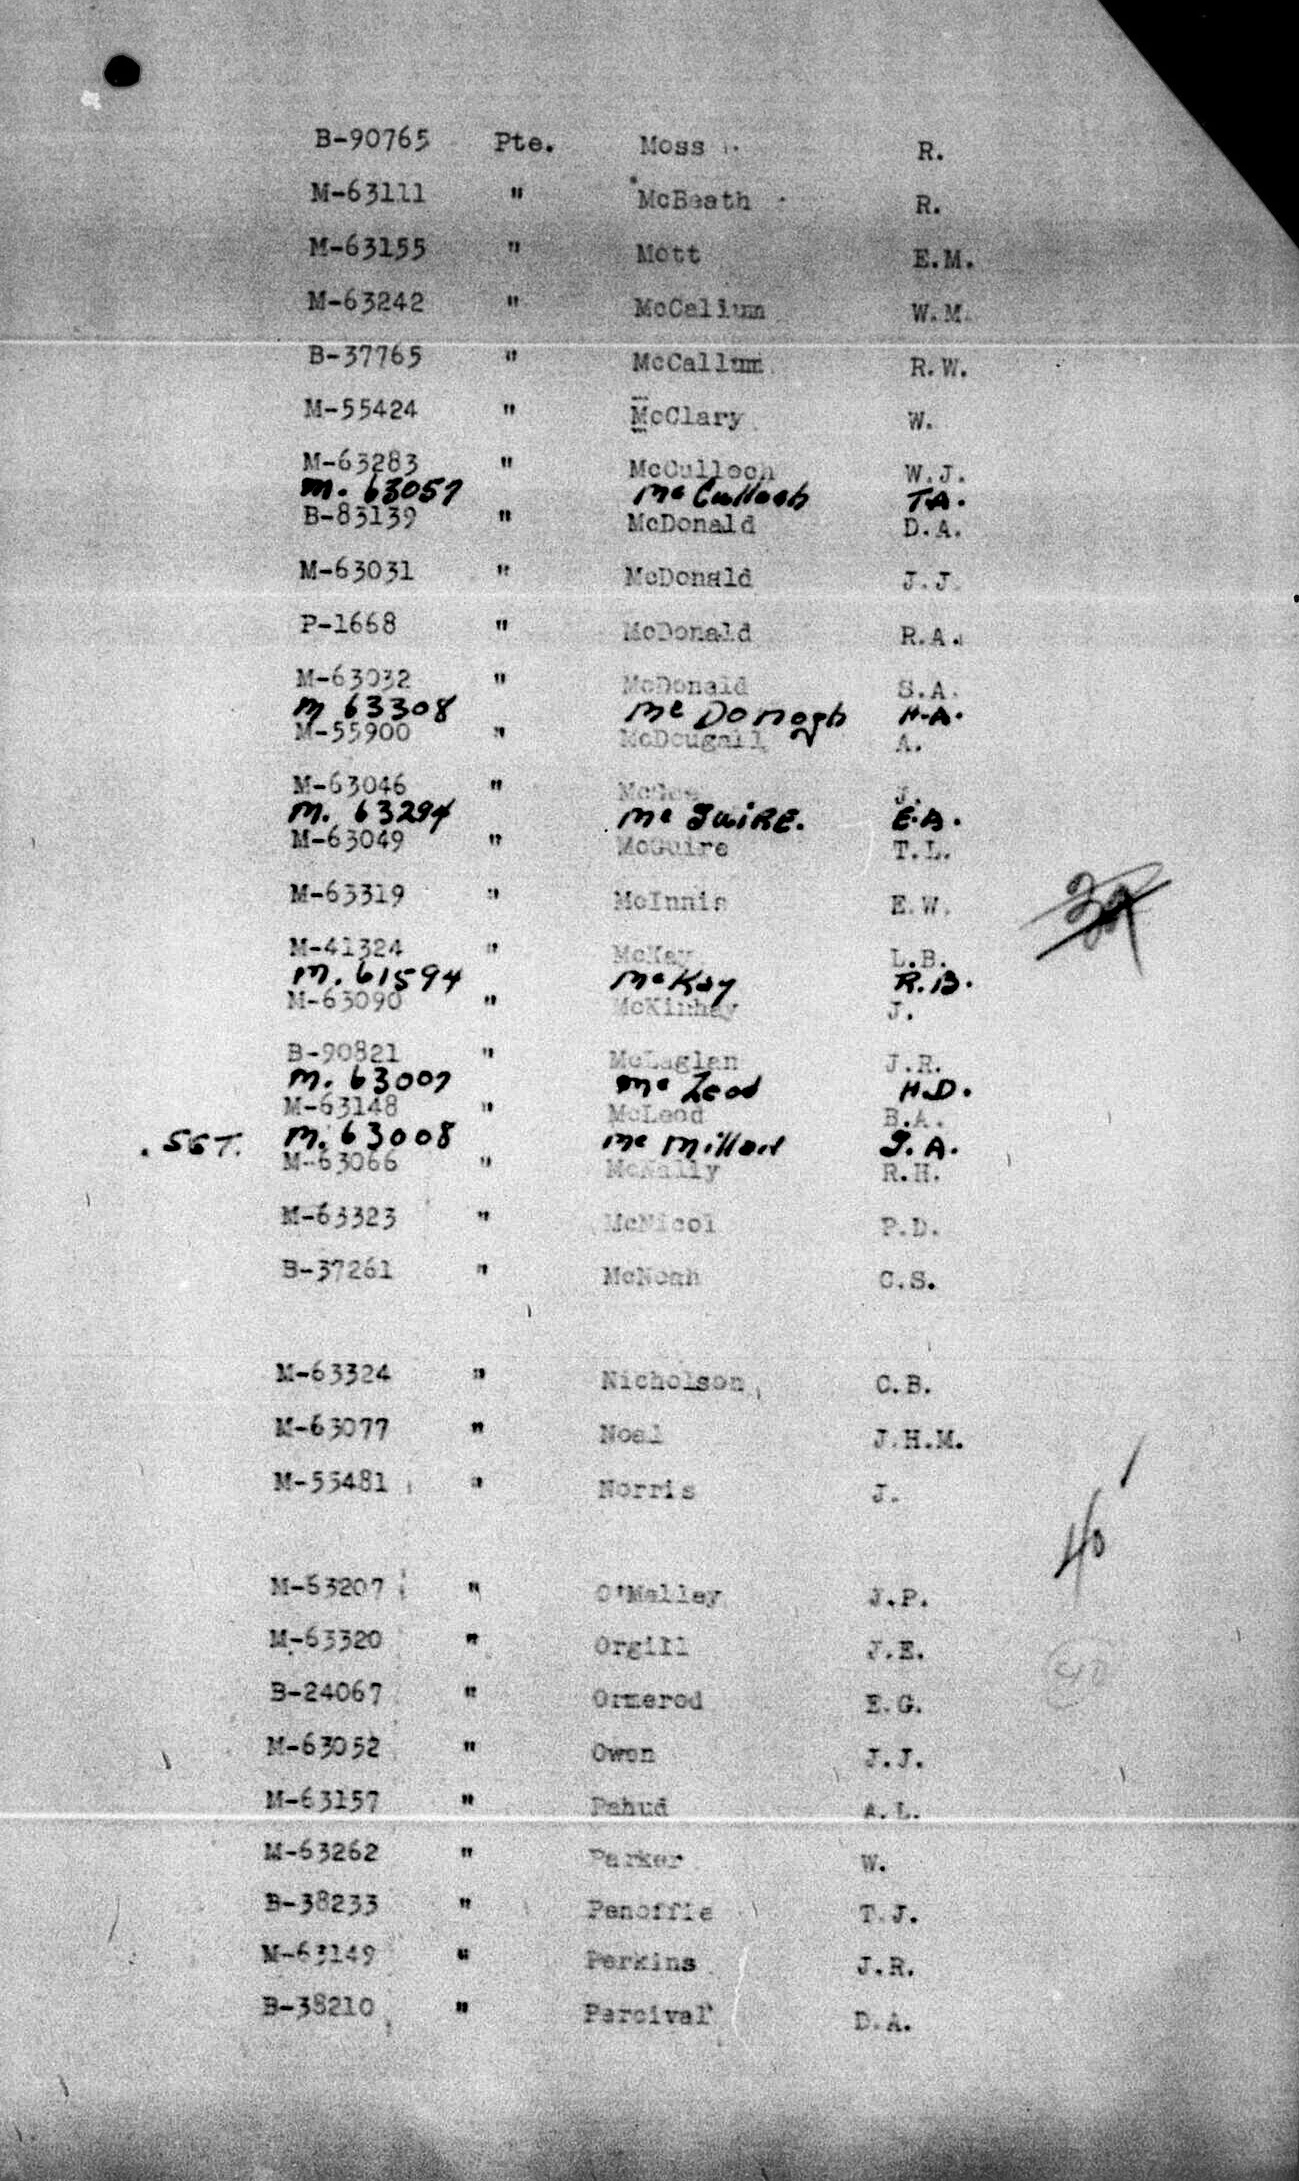 B-90765 Pte. Moss R.
M-63111 " McBeath R.
M-63155 " Mott E.M.
M-63242 " McCallum W.M.
B-37765 " McCallum R.W.
M-55424 " McClary W.
M-63283 " McCulloch W.J.
M. 63057 McCulloch T.A.
B-83139 " McDonald D.A.
M-63031 " McDonald J.J.
P-1668 " McDonald R.A.
M-63032 " McDonald S.A.
M 63308 McDonogh H.A.
M-55900 " McDougall A.
M-63046 " McGee J.
M. 63294 McGuiRE. E.A.
M-63049 " McGuire T.L.
M-63319 " McInnis E.W.
M-41324 " McKay L.B.
M. 61594 McKay R.B.
M-63090 " McKinhay J.
B-90821 " McLaglan J.R.
M. 63007 McLeod H.D.
M-63148 " McLeod B.A.
SGT. M. 63008 McMillan G.A.
M-63066 " McNally R.H.
M-63323 " McNicol P.D.
B-37261 " McNoah C.S.
M-63324 " Nicholson C.B.
M-63077 " Noal J.H.M.
M-55481 " Norris J.
40
M-63207 " O'Malley J.P.
M-63320 " Orgill J.E.
40
B-24067 " Ormerod E.G.
M-63052 " Owen J.J.
M-63157 " Pahud A.L.
M-63262 " Parker W.
B-38233 " Penoffie T.J.
M-63149 " Perkins J.R.
B-38210 " Percival D.A.